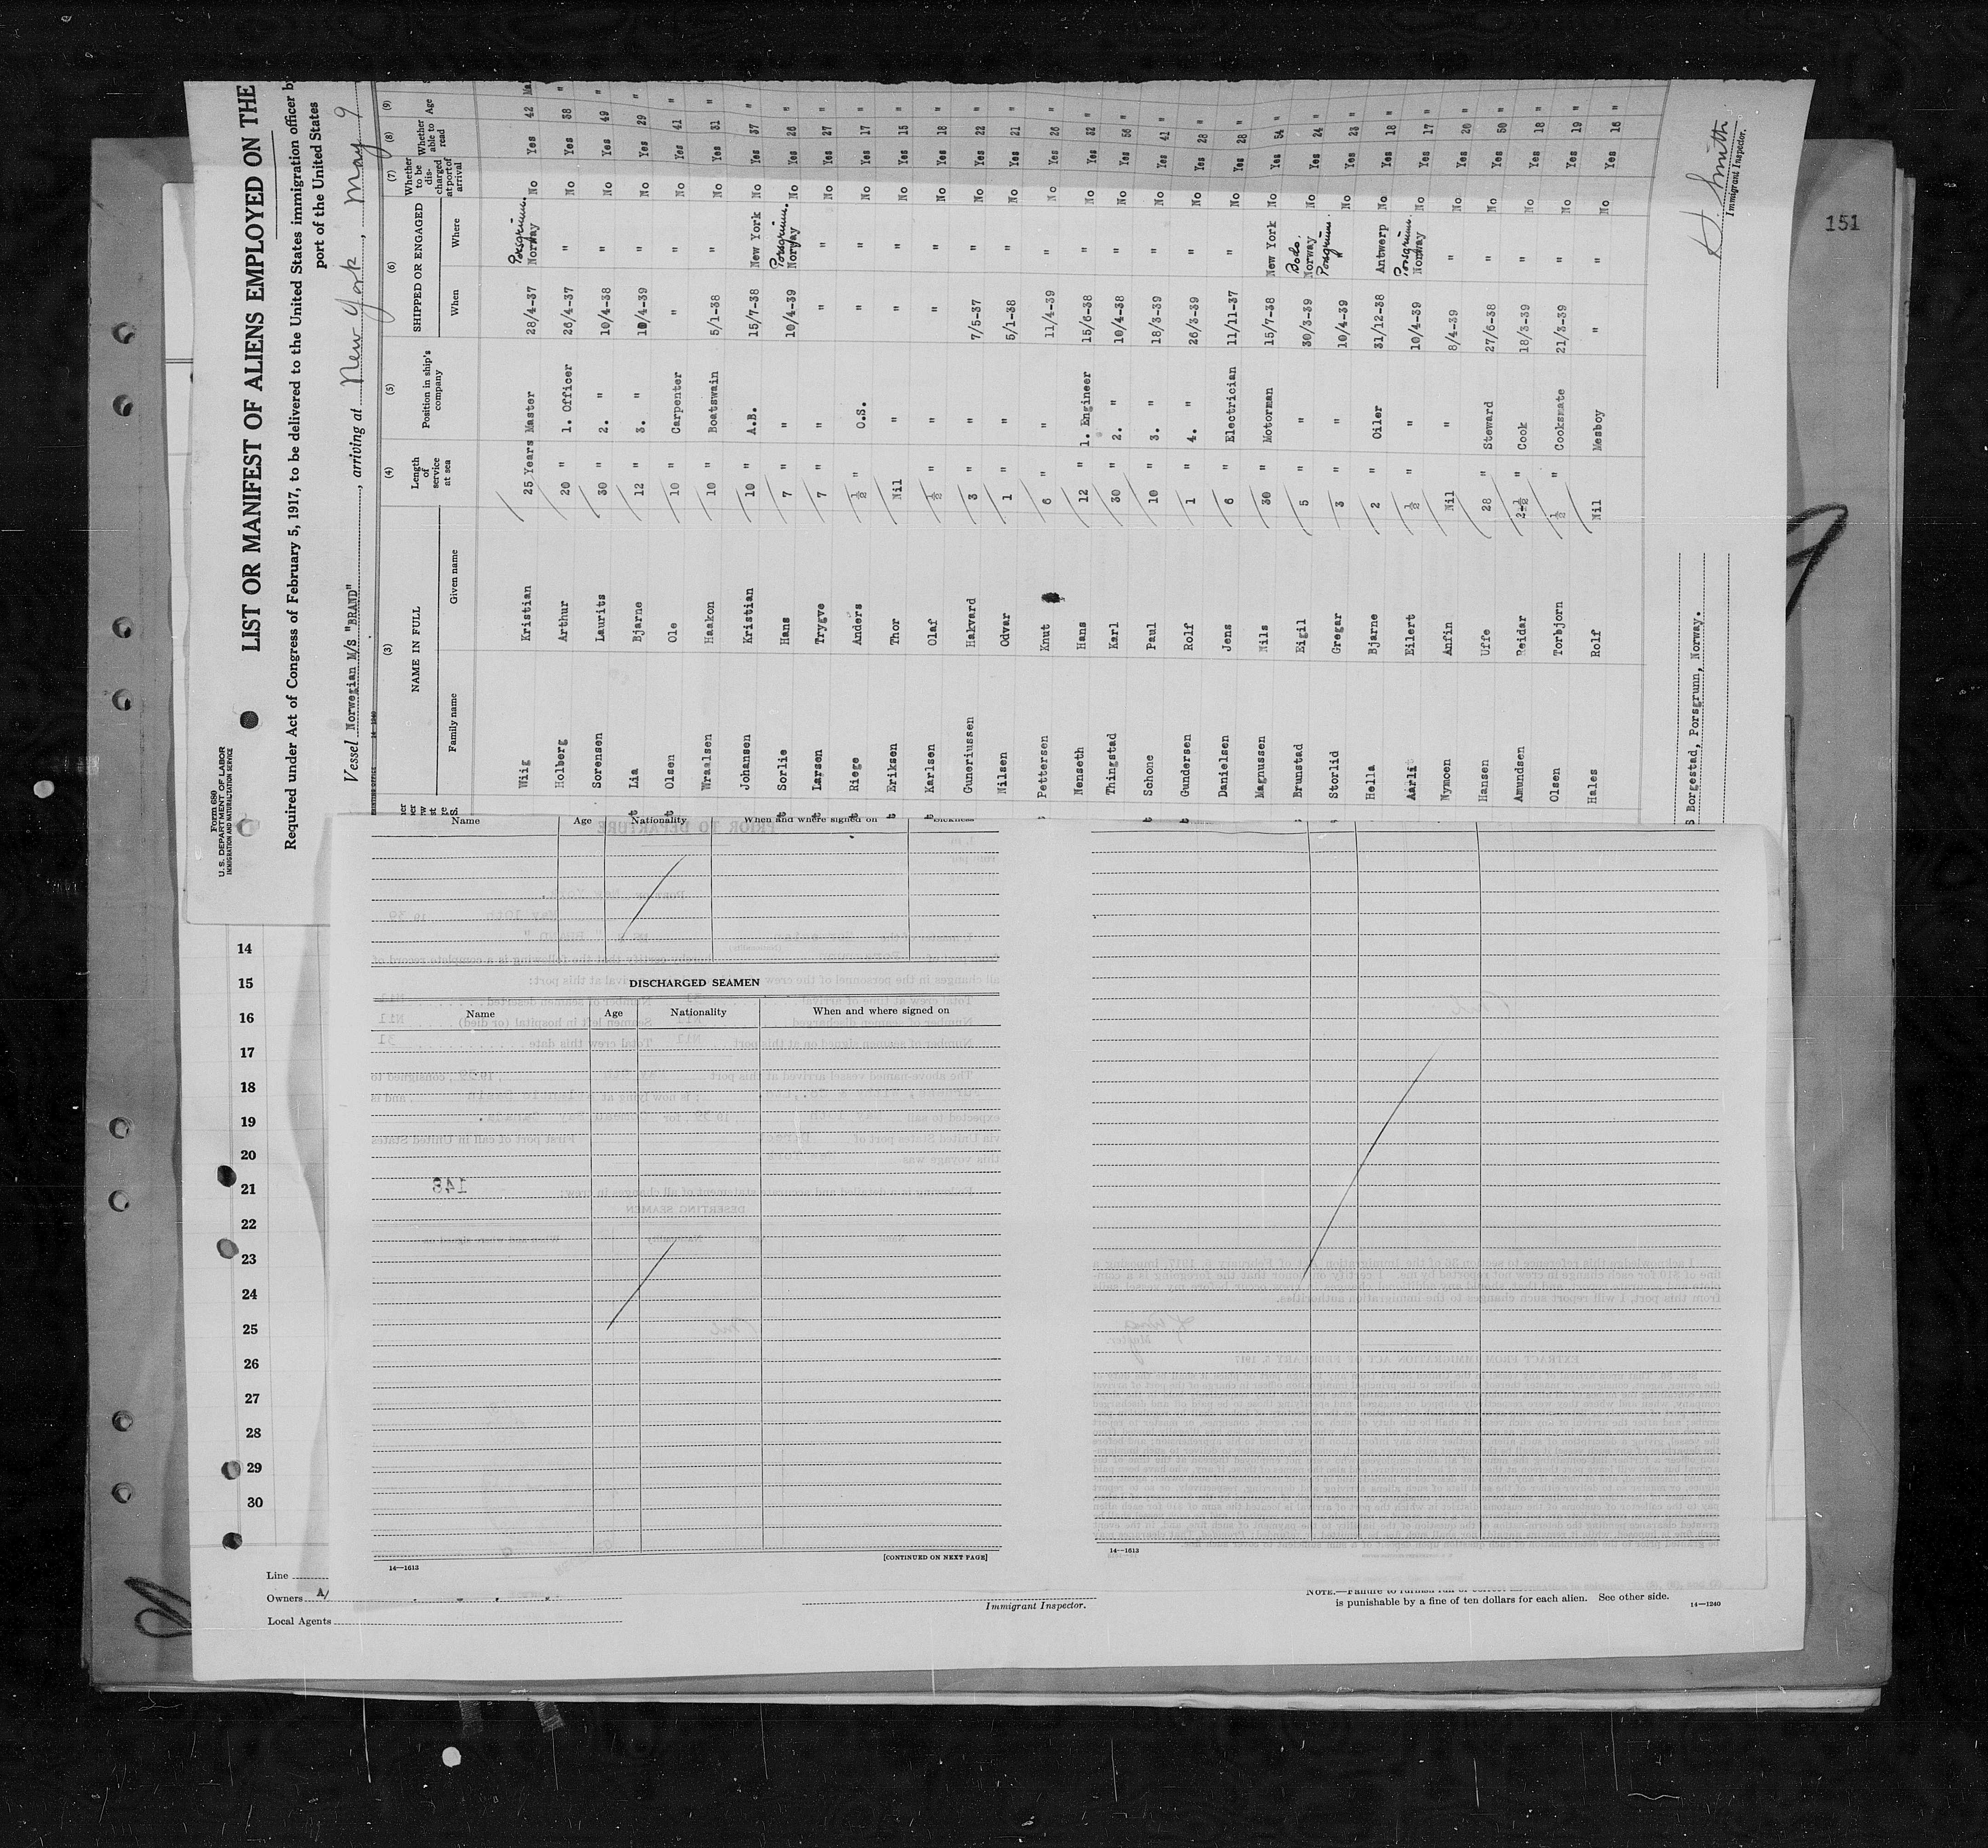 Form 680
U. S. DEPARTMENT OF LABOR
IMMIGRATION AND NATURALIZATION SERVICE
LIST OR MANIFEST OF ALIENS EMPLOYED ON THE
Required under Act of Congress of February 5, 1917, to be delivered to the United States immigration officer b
port of the United States
Vessel Norwegian M/S "BRAND", arriving at New York, May 9
14—1240
(3) (4) (5) (6) (7) (8) (9)
NAME IN FULL Length of service at sea Position in ship's company SHIPPED OR ENGAGED Whether to be discharged at port of arrival Whether able to read Age
Family name Given name When Where
Wiig Kristian 25 Years Master 28/4-37 Porsgrunn. Norway No Yes 42 Ma
Holberg Arthur 20 " 1. Officer 26/4-37 " No Yes 38 "
Sorensen Laurits 30 " 2. " 10/4-38 " No Yes 49 "
Lia Bjarne 12 " 3. " 10/4-39 " No Yes 29 "
Olsen Ole 10 " Carpenter " " No Yes 41 "
Wraalsen Haakon 10 " Boatswain 5/1-38 " No Yes 31 "
Johansen Kristian 10 " A.B. 15/7-38 New York No Yes 37 "
Sorlie Hans 7 " " 10/4-39 Porsgrunn. Norway No Yes 26 "
Larsen Trygve 7 " " " " No Yes 27 "
Riege Anders ½ " O.S. " " No Yes 17 "
Eriksen Thor Nil " " " No Yes 15 "
Karlsen Olaf ½ " " " " No Yes 18 "
Guneriussen Halvard 3 " " 7/5-37 " No Yes 22 "
Nilsen Odvar 1 " " 5/1-38 " No Yes 21 "
Pettersen Knut 6 " " 11/4-39 " No Yes 26 "
Nenseth Hans 12 " 1. Engineer 15/6-38 " No Yes 32 "
Thingstad Karl 30 " 2. " 10/4-38 " No Yes 56 "
Schone Paul 10 " 3. " 18/3-39 " No Yes 41 "
Gundersen Rolf 1 " 4. " 26/3-39 " No Yes 28 "
Danielsen Jens 6 " Electrician 11/11-37 " No Yes 28 "
Magnussen Nils 30 " Motorman 15/7-38 New York No Yes 54 "
Brunstad Eigil 5 " " 30/3-39 Bodo. Norway No Yes 24 "
Storlid Gregar 3 " " 10/4-39 Porsgrunn. " No Yes 23 "
Hella Bjarne 2 " Oiler 31/12-38 Antwerp No Yes 18 "
Aarlit Eilert ½ " " 10/4-39 Porsgrunn. Norway No Yes 17 "
Nymoen Anfin Nil " 8/4-39 " No Yes 20 "
Hansen Uffe 28 " Steward 27/6-38 " No Yes 50 "
Amundsen Reidar 2½ " Cook 18/3-39 " No Yes 18 "
Olsen Torbjorn ½ " Cooksmate 21/3-39 " No Yes 19 "
Hales Rolf Nil Mesboy " " No Yes 16 "
s Borgestad, Porsgrunn, Norway.
Smith
Immigrant Inspector.
151
Name Age Nationality When and where signed on
DISCHARGED SEAMEN
Name Age Nationality When and where signed on
148
[CONTINUED ON NEXT PAGE]
14—1613
14—1613
14
15
16
17
18
19
20
21
22
23
24
25
26
27
28
29
30
Line
Owners A/
Local Agents
Immigrant Inspector.
NOTE.—Failure to furnish full or correct
is punishable by a fine of ten dollars for each alien. See other side.
14—1240